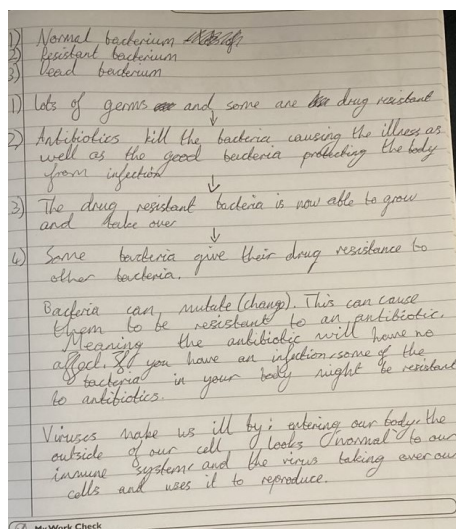 1) Normal bacterium
2) Resistant bacterium
3) Dead bacterium
1) Lots of germs and some are drug resistant
↓
2) Antibiotics kill the bacteria causing the illness as
well as the good bacteria protecting the body
from infection
↓
3) The drug resistant bacteria is now able to grow
and take over
↓
4) Some bacteria give their drug resistance to
other bacteria.
Bacteria can mutate (change). This can cause
them to be resistant to an antibiotic.
Meaning the antibiotic will have no
affect. If you have an infection, some of the
bacteria in your body might be resistant
to antibiotics.
Viruses make us ill by: entering our body, the
outside of our cell looks 'normal' to our
immune system and the virus taking over our
cells and uses it to reproduce.
My Work Check